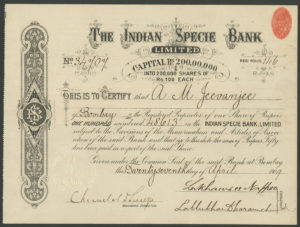 THE INDIAN SPECIE BANK
LIMITED
CAPITAL RS 200,00,000
INTO 200,000 SHARES OF
RS 100 EACH
No.
THIS IS TO CERTIFY that A. M. Jeevanjee
of Bombay is the Registered Proprietor of one Share of Rupees
ONE HUNDRED numbered 28613 in the INDIAN SPECIE BANK, LIMITED
subject to the Provisions of the Memorandum and Articles of Association
of the said Bank and that up to this date the sum of Rupees Fifty
has been paid in respect of the said Share.
Given under the Common Seal of the said Bank at Bombay
the Twentyseventh day of April 1909